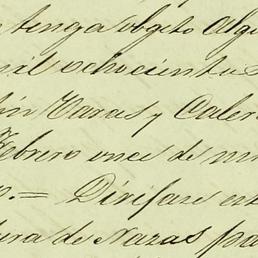 tenga objeto algu
mil ochocientos
Varas y Caler
Febrero once de m
= Dirijase es
de Nazas pa